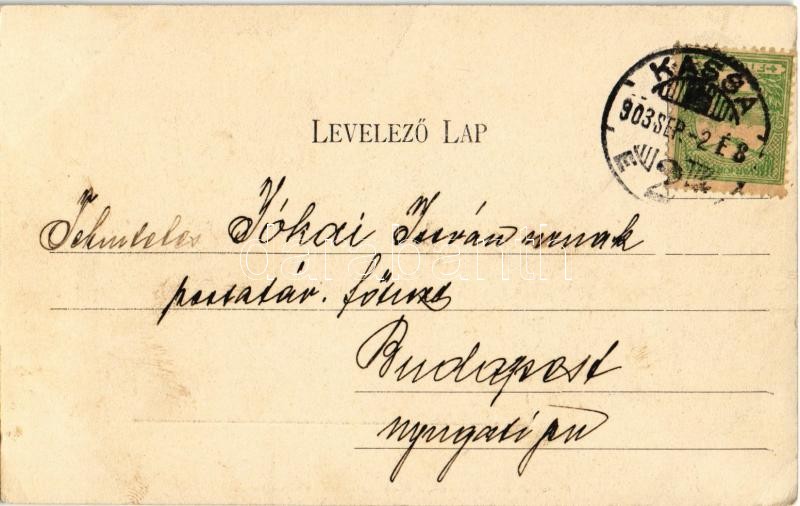 KASSA
903 SEP -2 É 8
2
LEVELEZŐ LAP
Tekintetes Jókai István urnak
postatáv. főtiszt
Budapest
nyugati pu